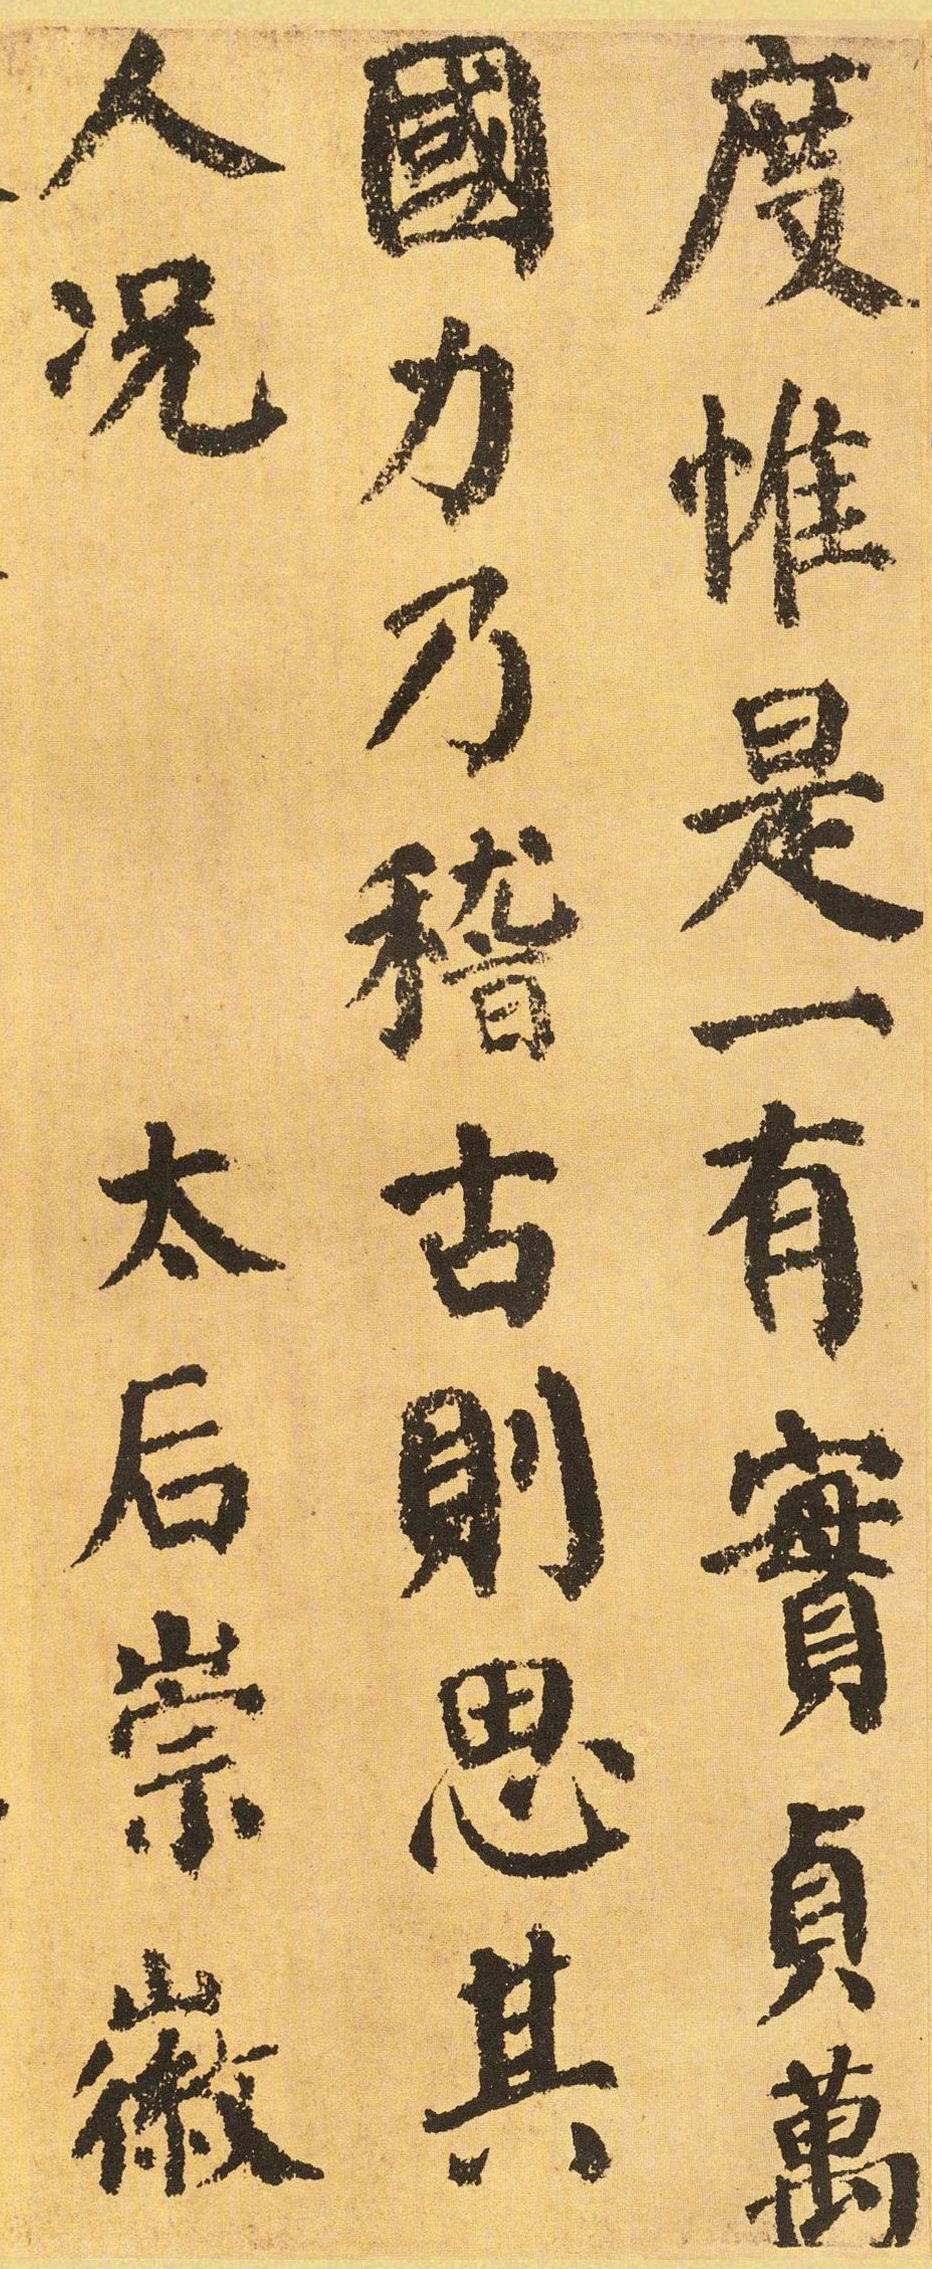 度惟是一有實貞萬
國力乃稽古則思其
人况太后崇徽